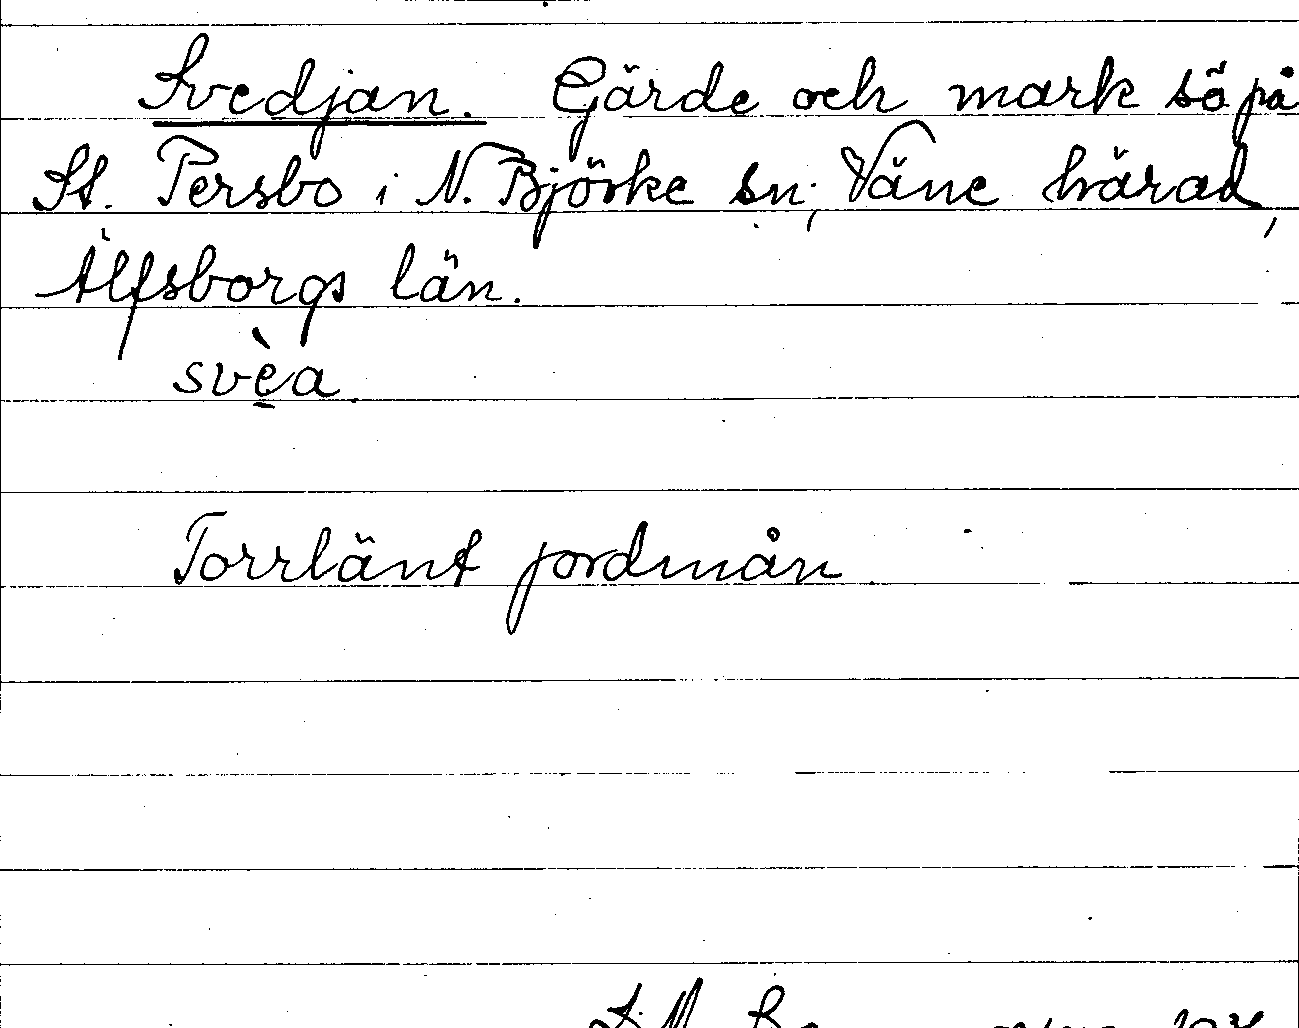 Svedjan. Gärde och mark sö på
St. Persbo i N. Björke sn, Väne härad,
Älfsborgs län.
svèa.
Torrlänt jordmån